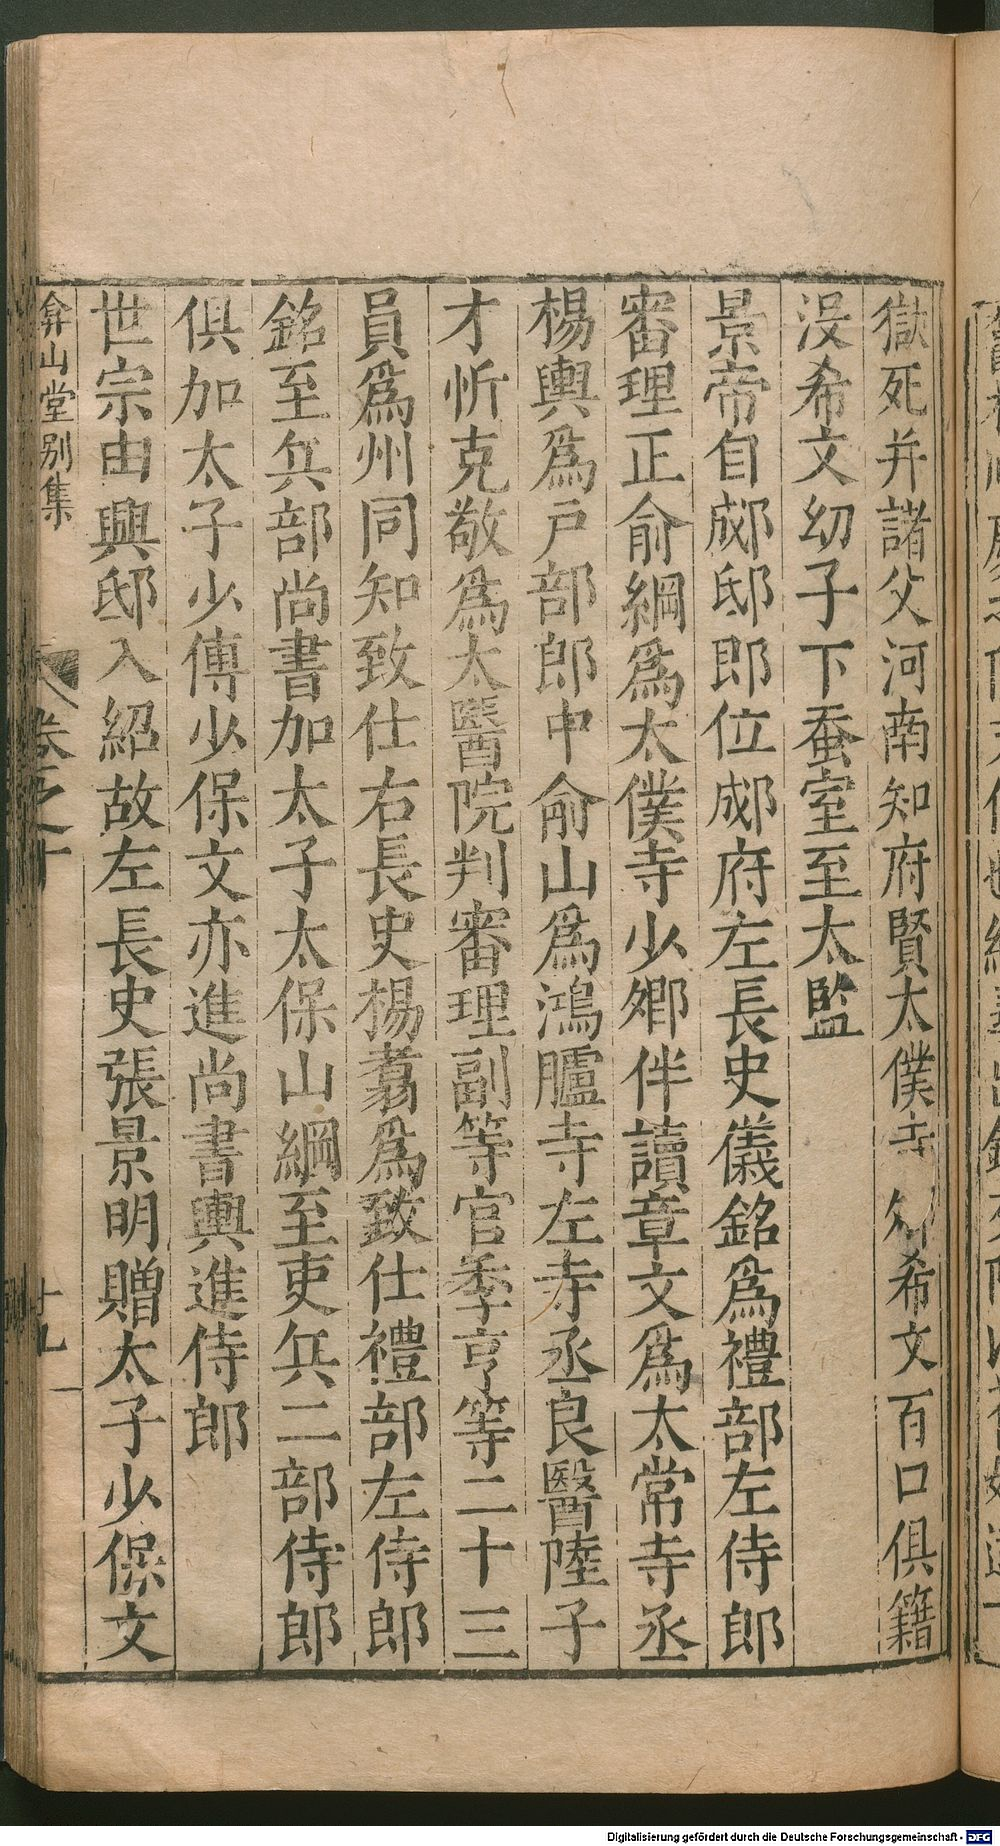 獄死并諸父河南知府賢太僕寺 希文百口俱籍
没希文幼子下蚕室至太監
景帝自郕邸即位郕府左長史儀銘爲禮部左侍郎
審理正俞綱爲太僕寺少卿伴讀章文爲太常寺丞
楊輿爲戸部郎中俞山爲鴻臚寺左寺丞良醫陸子
才忻克敬爲太醫院判審理副等官季亨等二十三
員爲州同知致仕右長史楊翥爲致仕禮部左侍郎
銘至兵部尚書加太子太保山綱至吏兵二部侍郎
俱加太子少傅少保文亦進尚書輿進侍郎
世宗由興邸入紹故左長史張景明贈太子少保文
弇山堂别集
卷之十
廿九
Digitalisierung gefördert durch die Deutsche Forschungsgemeinschaft - DFG